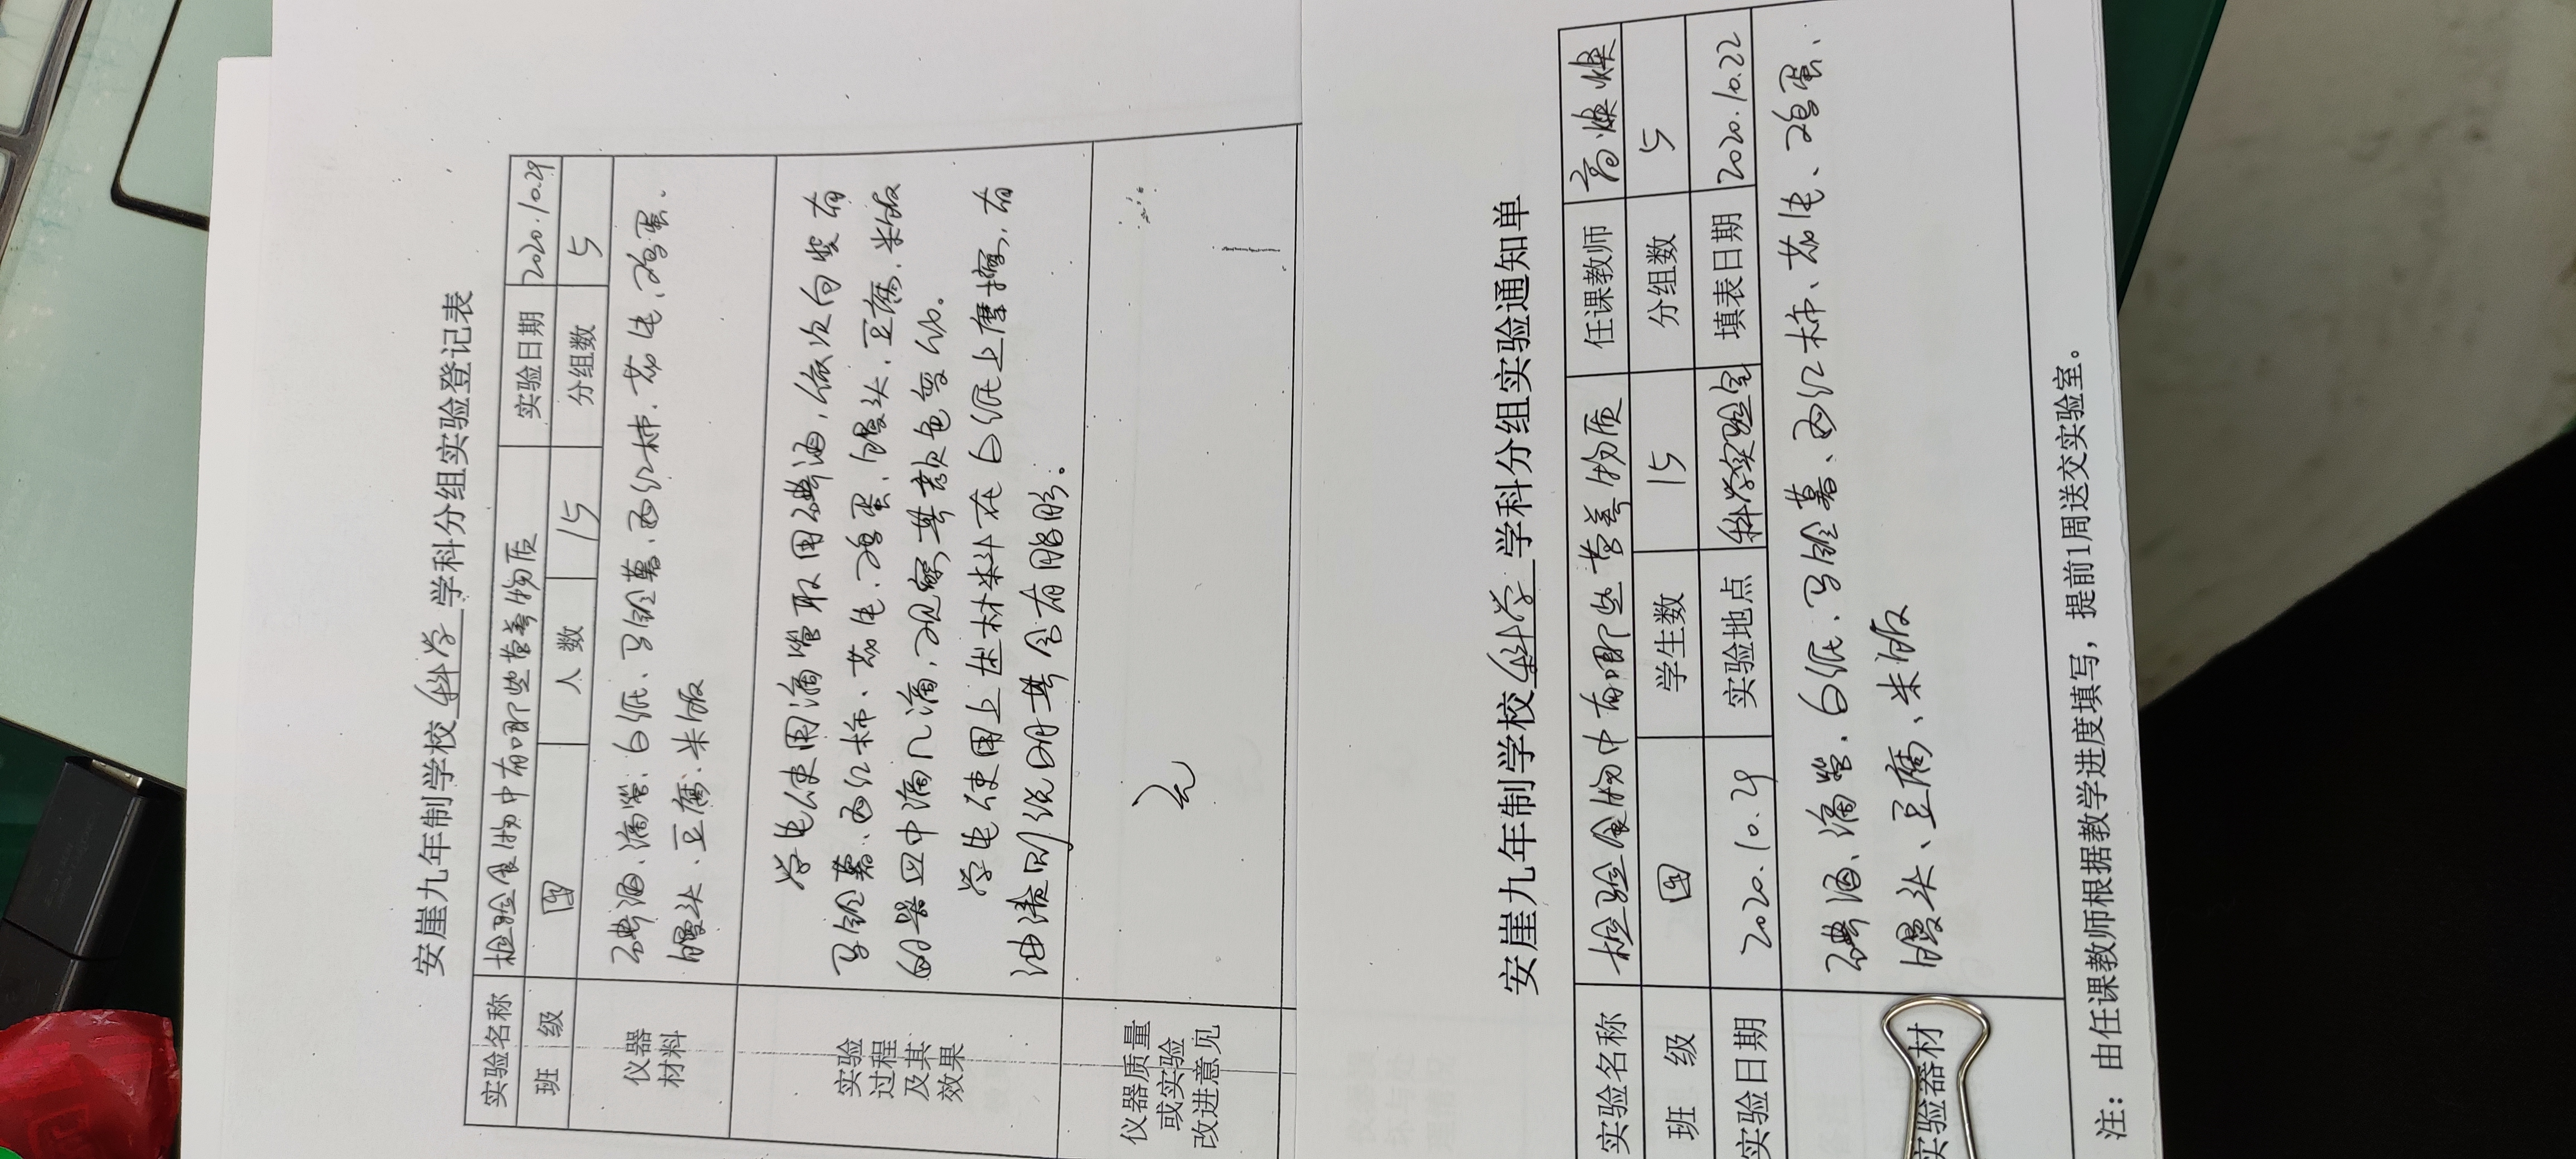 安崖九年制学校 科学 学科分组实验登记表
实验名称 检验食物中有哪些营养物质 实验日期 2020.10.29
班 级 四 人 数 15 分组数 5
仪器材料 碘酒、滴管、白纸、马铃薯、西红柿、花生、鸡蛋、
馒头、豆腐、米饭
实验过程及其效果 学生使用滴管取用碘酒，依次向装有
马铃薯、西红柿、花生、鸡蛋、馒头、豆腐、米饭
的器皿中滴几滴，观察其颜色变化。
学生使用上述材料在白纸上摩擦，有
油渍则说明其含有脂肪。
仪器质量或实验改进意见 无
安崖九年制学校 科学 学科分组实验通知单
实验名称 检验食物中有哪些营养物质 任课教师 高焕焕
班 级 四 学生数 15 分组数 5
实验日期 2020.10.29 实验地点 科学实验室 填表日期 2020.10.22
实验器材 碘酒、滴管、白纸、马铃薯、西红柿、花生、鸡蛋、
馒头、豆腐、米饭
注：由任课教师根据教学进度填写，提前1周送交实验室。